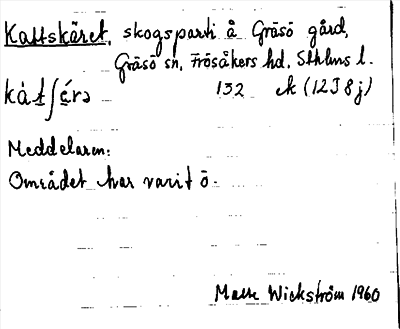 Kattskäret, skogsparti å Gräsö gård,
Gräsö sn, Frösåkers hd, Sthlms l.
kàt̲ʃǽrə 132 ek (12J 8j)
Meddelaren:
Området har varit ö.
Mats Wickström 1960